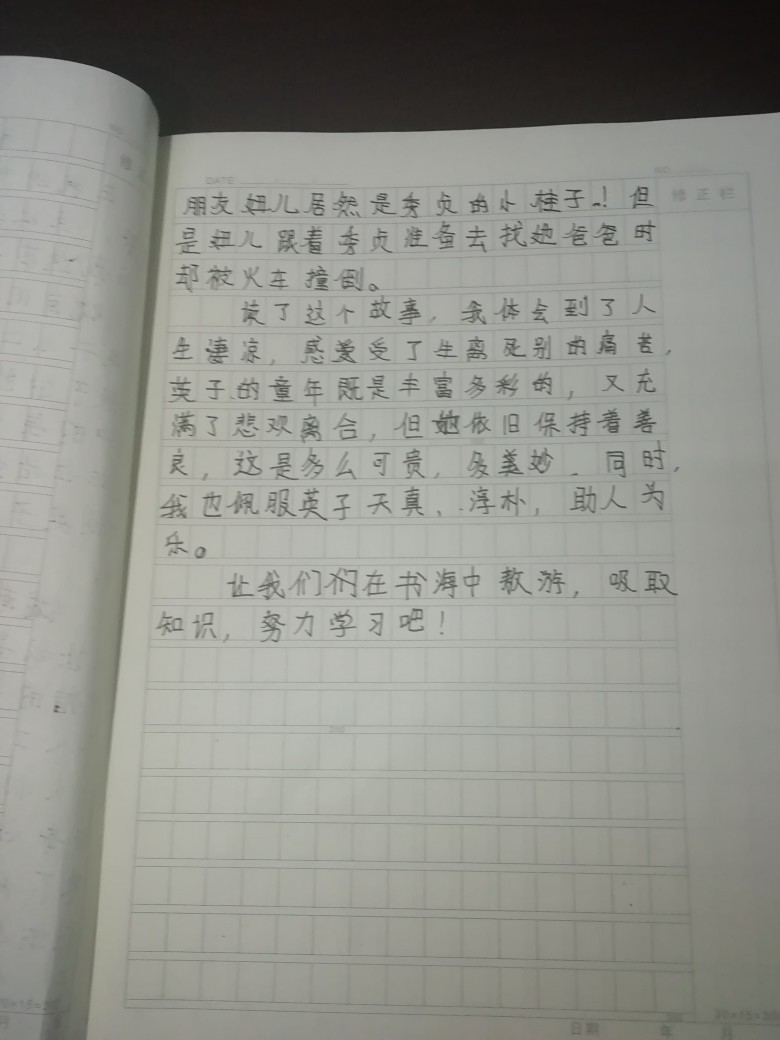 DATE
NO
修正栏
朋友妞儿居然是秀贞的小桂子！但
是妞儿跟着秀贞准备去找她爸爸时
却被火车撞倒。
读了这个故事，我体会到了人
生凄凉，感受了生离死别的痛苦，
英子的童年既是丰富多彩的，又充
满了悲欢离合，但她依旧保持着善
良，这是多么可贵，多美妙．同时，
我也佩服英子天真、淳朴，助人为
乐。
让我们们在书海中敖游，吸取
知识，努力学习吧！
200
300
20×15=300
日期 年 月